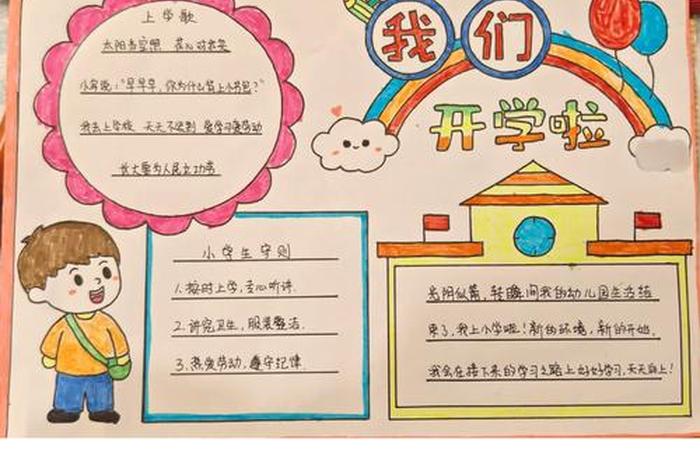 我们
开学啦
上学歌
太阳当空照 花儿对我笑
小鸟说:“早早早,你为什么背上小书包?”
我去上学校 天天不迟到 爱学习爱劳动
长大要为人民立功劳
小学生守则
1.按时上学,专心听讲.
2.讲究卫生,服装整洁.
3.热爱劳动,遵守纪律.
光阴似箭,转瞬间我的幼儿园生活结
束了,我上小学啦!新的环境,新的开始,
我会在接下来的学习之路上好好学习,天天向上!